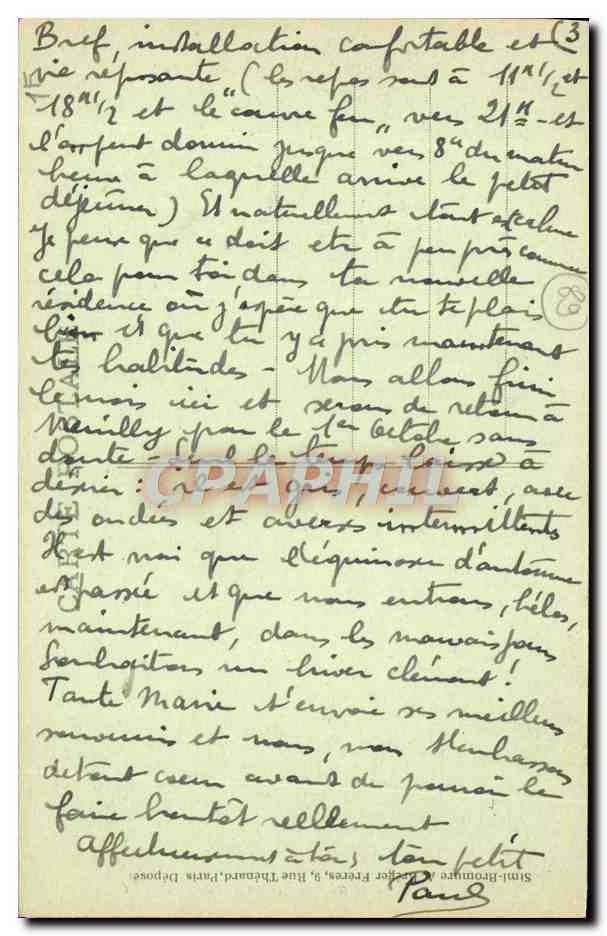 (3
Bref, installation confortable et
vie reposante (les repas sont à 11h 1/2 et
18h 1/2 et le "couvre feu" vers 21h - et
l'on peut dormir jusque vers 8h du matin
heure à laquelle arrive le petit
déjeuner) Et naturellement tout est calme
Je pense que ce doit etre à peu près comme
cela pour toi, dans ta nouvelle
résidence où j'espère que tu te plais
bien et que tu y a pris maintenant
tes habitudes - Nous allons finir
le mois ici et serons de retour à
Neuilly pour le 1er Octobre sans
doute - le temps laisse à
désirer : il est gris, couvert, avec
des ondées et averses intermittents
Il est vrai que l'équinoxe d'automne
est passée et que nous entrons, hélas,
maintenant, dans les mauvais jours
Souhaitons un hiver clément !
Tante Marie t'envoie ses meilleurs
souvenirs et nous, nous t'embrassons
de tout coeur avant de pouvoir le
faire bientôt réellement
Affectueusement à toi, ton petit
Paul
CARTE POSTALE
CPAPHIL
Simi-Bromure A. Breger Frères, 9, Rue Thénard, Paris Déposé